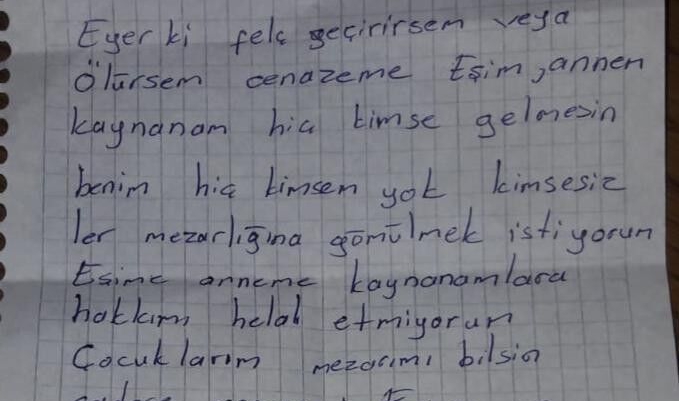 Eyer ki felç geçirirsem veya
Ölürsem cenazeme Eşim, annem
kaynanam hiç kimse gelmesin
benim hiç kimsem yok kimsesiz
ler mezarlığına gömülmek istiyorum
Eşime anneme kaynanamlara
hakkım helal etmiyorum
Çocuklarım mezarımı bilsin